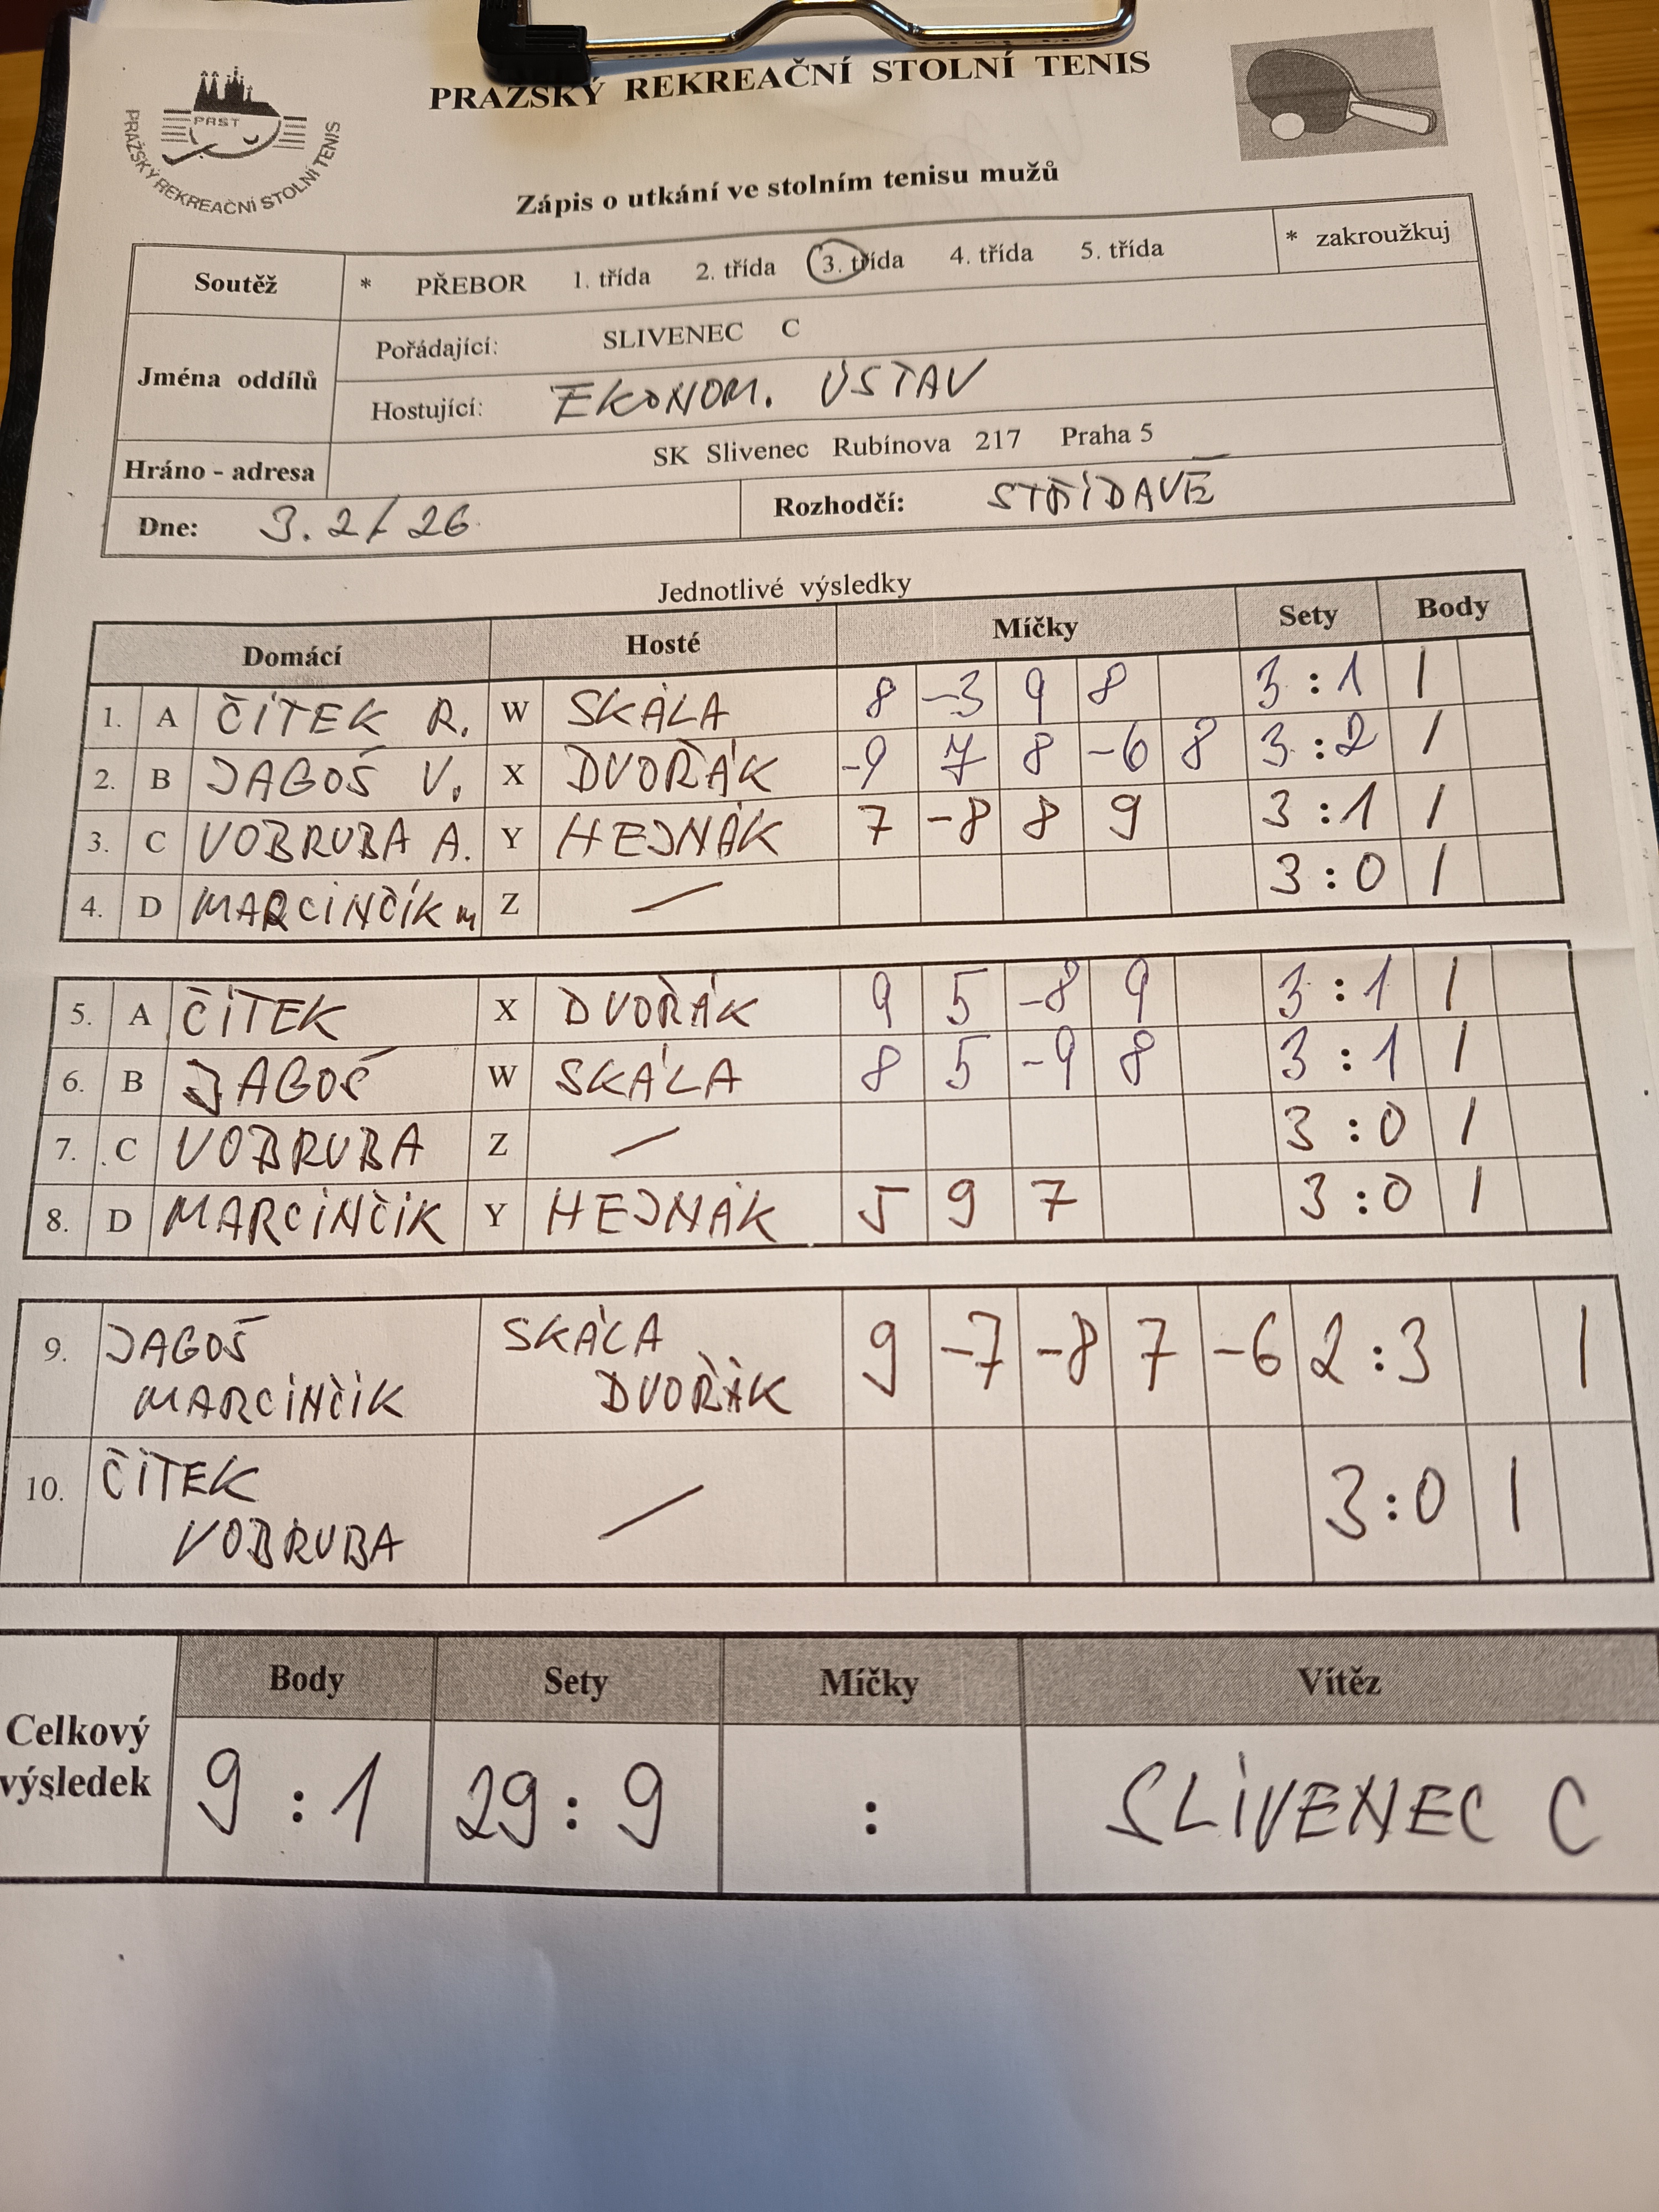 PRAŽSKÝ REKREAČNÍ STOLNÍ TENIS
PRST
PRAŽSKÝ REKREAČNÍ STOLNÍ TENIS
Zápis o utkání ve stolním tenisu mužů
Soutěž * PŘEBOR 1. třída 2. třída 3. třída 4. třída 5. třída * zakroužkuj
Jména oddílů
Pořádající: SLIVENEC C
Hostující: EKONOM. ÚSTAV
Hráno - adresa SK Slivenec Rubínova 217 Praha 5
Dne: 3. 2/26 Rozhodčí: STŘÍDAVĚ
Jednotlivé výsledky
Domácí Hosté Míčky Sety Body
1. A ČÍTEK R. W SKÁLA 8 -3 9 8 3:1 1
2. B JAGOŠ V. X DVOŘÁK -9 7 8 -6 8 3:2 1
3. C VOBRUBA A. Y HEJNÁK 7 -8 8 9 3:1 1
4. D MARCINČÍK M Z — 3:0 1
5. A ČÍTEK X DVOŘÁK 9 5 -8 9 3:1 1
6. B JAGOŠ W SKÁLA 8 5 -9 8 3:1 1
7. C VOBRUBA Z — 3:0 1
8. D MARCINČÍK Y HEJNÁK 5 9 7 3:0 1
9. JAGOŠ SKÁLA 9 -7 -8 7 -6 2:3 1
MARCINČÍK DVOŘÁK
10. ČÍTEK — 3:0 1
VOBRUBA
Body Sety Míčky Vítěz
Celkový výsledek 9:1 29:9 : SLIVENEC C